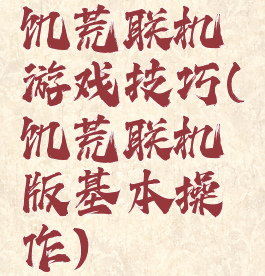 饥荒联机
游戏技巧(
饥荒联机
版基本操
作)